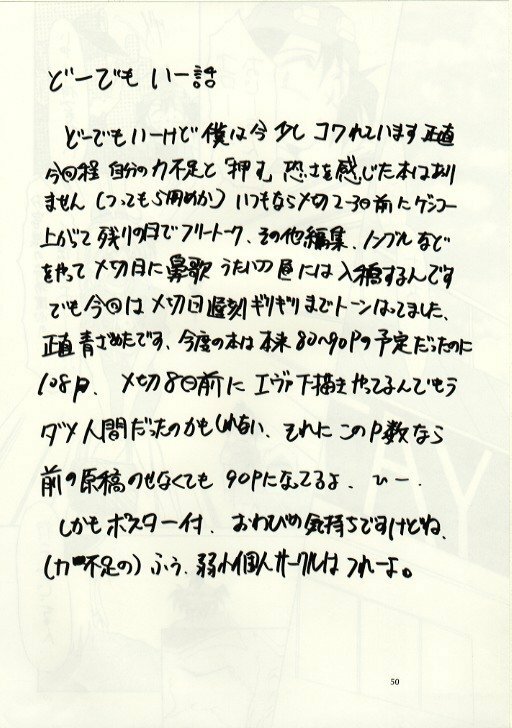 どーでもいー話
どーでもいーけど僕は今少しコワれています正直
今回程自分の力不足と「押す」恐さを感じた本はあり
ません(つっても5冊めか)いつもなら〆切2〜3日前にゲンコー
上がて残りの日でフリートーク、その他編集、ノンブルなど
をやって〆切日に鼻歌うたいつつ昼には入稿するんです
でも今回は〆切日遅刻ギリギリまでトーンはってました、
正直青ざめたです、今度の本は本来80〜90Pの予定だったのに
108P、〆切8日前にエヴァ下描きやってるんでもう
ダメ人間だったのかもしれない、それにこのP数なら
前の原稿のせなくても90Pになってるよ、ひー.
しかもポスター付、おわびの気持ちですけどね、
(力不足の)ふぅ、弱小個人サークルはつれーよ。
50